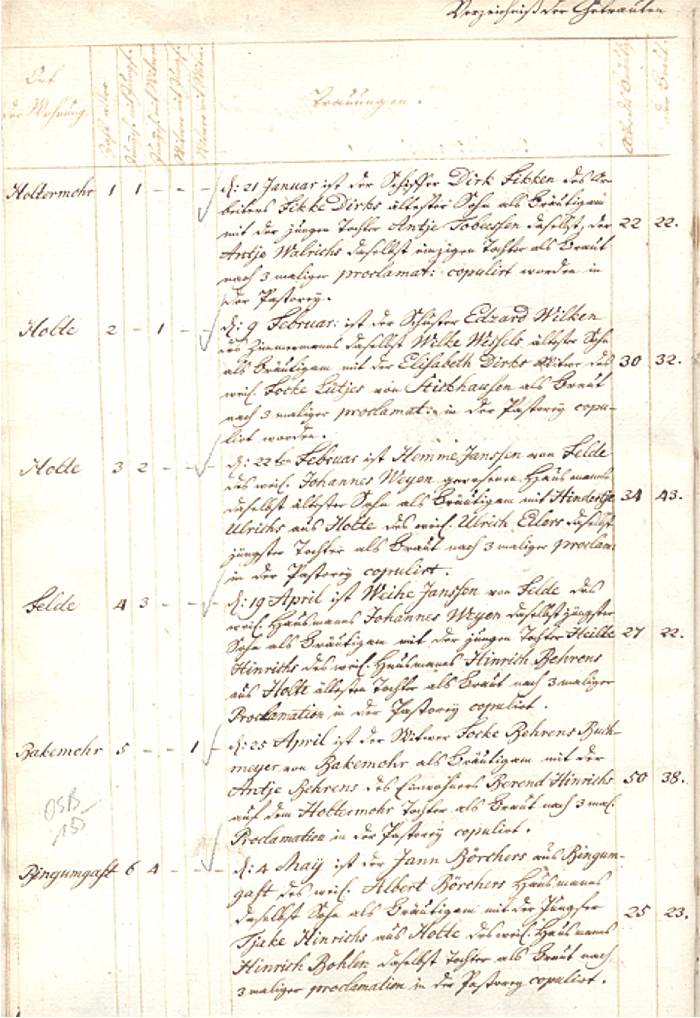 Verzeichniß der Getrauten
Ort
der Wohnung.
Trauungen.
Holtermohr 1 1 - - - d: 21 Januar ist der Schiffer Dirk Fikken des Ar-
beiters Fikke Dirks ältester Sohn als Bräutigam
mit der jungen Tochter Antje Tobiassen daselbst, der 22 22.
Antje Walrichs daselbst einzigen Tochter als Braut
nach 3 maliger proclamat: copulirt worden in
der Pastorey.
Holte 2 - 1 - - d: 9 Februar: ist der Schuster Edzard Wilken
des Zimmermanns daselbst Wilke Wessels ältester Sohn
als Bräutigam mit der Elisabeth Dirks Witwe des 30 32.
weil. Focke Lutjes von Stickhausen als Braut
nach 3 maliger proclamat: in der Pastorey copu-
lirt worden.
Holte 3 2 - - - d: 22ten Februar ist Hemme Janssen von Felde
des weil. Johannes Weyen gewesenen Hausmanns
daselbst ältester Sohn als Bräutigam mit Hindertje 34 43.
Ulrichs aus Holte des weil. Ulrich Eilers daselbst
jüngster Tochter als Braut nach 3 maliger proclam:
in der Pastorey copulirt.
Felde 4 3 - - - d: 19 April ist Weihe Janssen von Felde des
weil. Hausmanns Johannes Weyen daselbst jüngster
Sohn als Bräutigam mit der jungen Tochter Heilke 27 22.
Hinrichs des weil. Hausmanns Hinrich Behrens
aus Holte ältesten Tochter als Braut nach 3 maliger
Proclamation in der Pastorey copulirt.
Bakemohr 5 - - 1 - d: 25 April ist der Witwer Focke Behrens Buch-
meyer von Bakemohr als Bräutigam mit der
Antje Behrens des Einwohners Berend Hinrichs 50 38.
auf dem Holtermohr Tochter als Braut nach 3 mal.
Proclamation in der Pastorey copulirt.
OSB
Bingumgast 6 4 - - - d: 4 Maij ist der Jann Börchers aus Bingum-
gast des weil. Albert Börchers Hausmanns
daselbst Sohn als Bräutigam mit der Jungfer 25 23.
Tjake Hinrichs aus Holte des weil. Hausmanns
Hinrich Bohlen daselbst Tochter als Braut nach
3 maliger proclamation in der Pastorey copulirt.